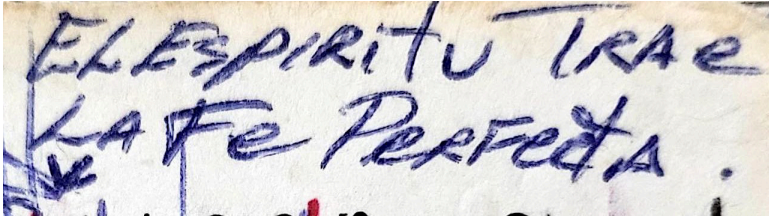 EL ESPIRITU TRAe
LA Fe PERFectA.